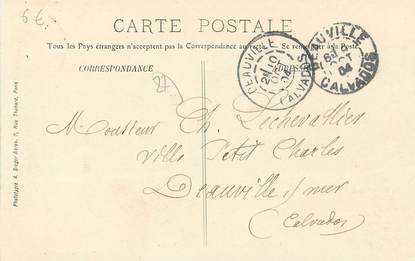 6€
CARTE POSTALE
Tous les Pays étrangers n'acceptent pas la Correspondance au recto. Se renseigner à la Poste.
CORRESPONDANCE
ADRESSE
DEAUVILLE
CALVADOS
DEAUVILLE
OCT
04
CALVADOS
Monsieur Ch. Lechevallier
Villa Petit Charles
Deauville s/ mer
(Calvados)
Phototypie A. Breger frères, 9, Rue Thénard, Paris